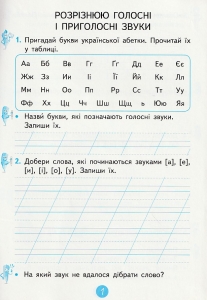 РОЗРІЗНЮЮ ГОЛОСНІ
І ПРИГОЛОСНІ ЗВУКИ
1. Пригадай букви української абетки. Прочитай їх
у таблиці.
Аа Бб Вв Гг Ґґ Дд Ее Єє
Жж Зз Ии Іі Її Йй Кк Лл
Мм Нн Оо Пп Рр Сс Тт Уу
Фф Хх Цц Чч Шш Щщ ь Юю Яя
• Назви букви, які позначають голосні звуки.
Запиши їх.
2. Добери слова, які починаються звуками [а], [е],
[и], [і], [о], [у]. Запиши їх.
• На який звук не вдалося дібрати слово?